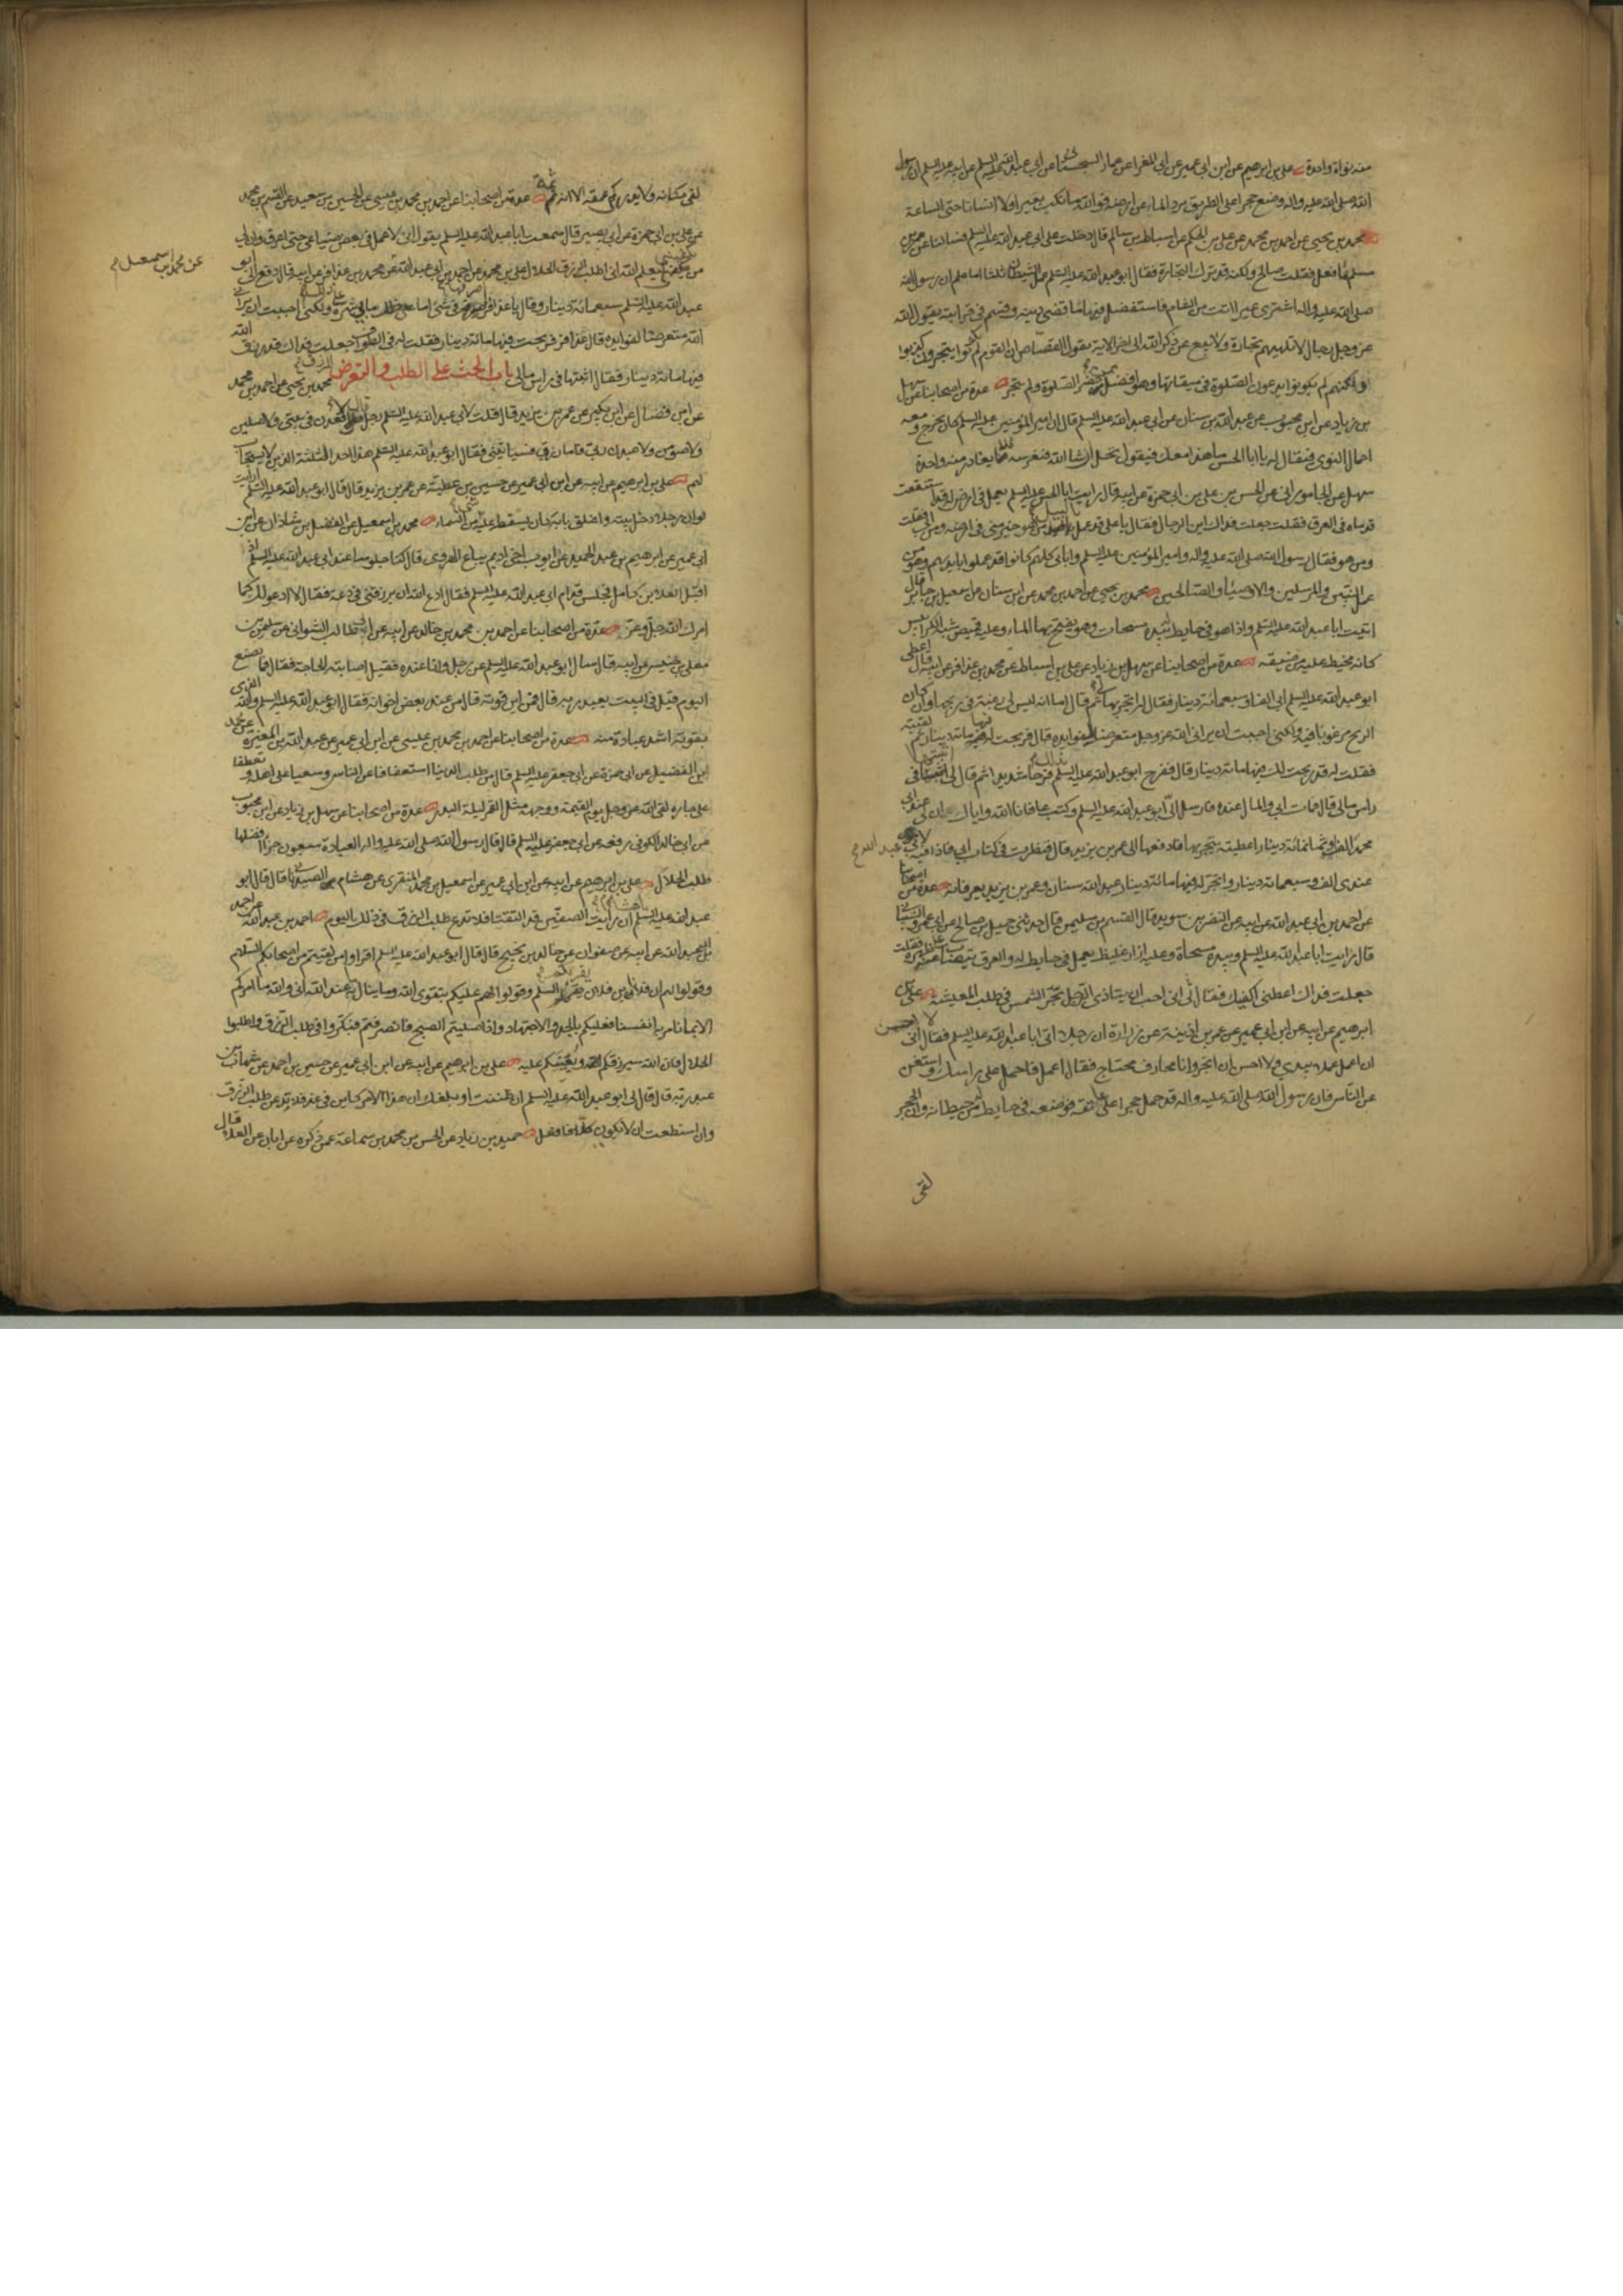 منه نواة واحدة علي بن ابراهيم عن ابن ابي عمير عن ابي المغرا عن عمار السجستاني عن ابي عبد الله عليه السلم عن ابيه عليه السلم ان رسول
الله صلى الله عليه واله وضع حجرا على الطريق يرد الماء عن ارضه فوالله ما نكب بعيرا ولا انسانا حتى الساعة
محمد بن يحيى عن احمد بن محمد عن علي بن الحكم عن اسباط بن سالم قال دخلت على ابي عبد الله عليه السلم فسالنا عن عمر بن
مسلم ما فعل فقلت صالح ولكنه قد ترك التجارة فقال ابو عبد الله عليه السلم عمل الشيطان ثلثا اما علم ان رسول الله
صلى الله عليه واله اشترى عيرا اتت من الشام فاستفضل فيها ما قضى دينه وقسم في قرابته يقول الله
عز وجل رجال لا تلهيهم تجارة ولا بيع عن ذكر الله الى اخر الاية يقول القصاص ان القوم لم يكونوا يتجرون كذبوا
ولكنهم لم يكونوا يدعون الصلوة في ميقاتها وهو افضل ممن حضر الصلوة ولم يتجر عدة من اصحابنا عن سهل
بن زياد عن ابن محبوب عن عبد الله بن سنان عن ابي عبد الله عليه السلم قال ان امير المؤمنين عليه السلم كان يخرج ومعه
احمال النوى فيقال له يا ابا الحسن ما هذا معك فيقول نخل ان شا الله فيغرسه فما يغادر منه واحدة
سهل عن الجاموراني عن الحسن بن علي بن ابي حمزة عن ابيه قال رايت ابا الحسن عليه السلم يعمل في ارض له قد استنقعت
قدماه في العرق فقلت جعلت فداك اين الرجال فقال يا علي قد عمل باليد من هو خير مني في ارضه ومن ابي فقلت
ومن هو فقال رسول الله صلى الله عليه واله وامير المؤمنين عليه السلم وابائي كلهم كانوا قد عملوا بايديهم وهو من
عمل النبيين والمرسلين والاوصيا والصالحين محمد بن يحيى عن احمد بن محمد عن ابن سنان عن اسمعيل بن جابر قال
اتيت ابا عبد الله عليه السلم واذا هو في حايط له بيده مسحات وهو يفتح بها الماء وعليه قميص شبه الكرابيس
كانه مخيط عليه من ضيقه عدة من اصحابنا عن سهل بن زياد عن علي بن اسباط عن محمد بن عذافر عن ابيه قال اعطى
ابو عبد الله عليه السلم ابي الفا وسبعمائة دينار فقال له اتجر بها لي ثم قال اما انه ليس لي رغبة في ربحها وان كان
الربح مرغوبا فيه ولكني احببت ان يراني الله عز وجل متعرضا لفوايده قال فربحت له فيها مائة دينار ثم لقيته
فقلت له قد ربحت لك فيها مائة دينار قال ففرح ابو عبد الله عليه السلم بذلك فرحا شديدا ثم قال لي اثبتها في
راس مالي قال فمات ابي والمال عنده فارسل الي ابو عبد الله عليه السلم وكتب عافانا الله واياك ان لي عند ابي
محمد الفا وثمانمائة دينار اعطيته يتجر بها فادفعها الى عمر بن يزيد قال فنظرت في كتاب ابي فاذا فيه لابي
عبد الله
عندي الف وسبعمائة دينار واتجر له فيها مائة دينار عبد الله بن سنان وعمر بن يزيد يعرفانه عدة من اصحابنا
عن احمد بن ابي عبد الله عن ابيه عن النضر بن سويد قال القسم بن سليمن قال حدثني جميل بن صالح عن ابي عمرو الشيباني
قال رايت ابا عبد الله عليه السلم وبيده مسحاة وعليه ازار غليظ يعمل في حايط له والعرق يتصاب عن ظهره فقلت
جعلت فداك اعطني اكفك فقال لي اني احب ان يتاذى الرجل بحر الشمس في طلب المعيشة علي بن
ابرهيم عن ابيه عن ابن ابي عمير عن عمر بن اذينة عن زرارة ان رجلا اتى ابا عبد الله عليه السلم فقال اني لا احسن
ان اعمل عملا بيدي ولا احسن ان اتجر وانا محارف محتاج فقال اعمل فاحمل على راسك واستغن
عن الناس فان رسول الله صلى الله عليه واله قد حمل حجرا على عاتقه فوضعه في حايط له من حيطانه وان الحجر
لفي
لفي مكانه ولا يدرى كم عمقه الا انه ثم عدة من اصحابنا عن احمد بن محمد بن عيسى عن الحسين بن سعيد عن القسم بن محمد
عن علي بن ابي حمزة عن ابي بصير قال سمعت ابا عبد الله عليه السلم يقول اني لاعمل في بعض ضياعي حتى اعرق وان لي
من يكفيني ليعلم الله اني اطلب الرزق الحلال علي بن محمد عن احمد بن ابي عبد الله عن محمد بن عذافر عن ابيه قال دفع الي ابو
عن محمد بن اسمعيل
عبد الله عليه السلم سبعمائة دينار وقال يا عذافر اصرفها في شي اما على ذلك ما بي شره ولكني احببت ان يراني
الله متعرضا لفوايده قال عذافر فربحت فيها مائة دينار فقلت له في الطواف جعلت فداك قد رزق الله
فيها مائة دينار فقال اثبتها في راس مالي باب الحث على الطلب والتعرض للرزق محمد بن يحيى عن احمد بن محمد
عن ابن فضال عن ابن بكير عن عمر بن يزيد قال قلت لابي عبد الله عليه السلم رجل قال لاقعدن في بيتي ولاصلين
ولاصومن ولاعبدن ربي فاما رزقي فسياتيني فقال ابو عبد الله عليه السلم هذا احد الثلثة الذين لا يستجاب
لهم علي بن ابرهيم عن ابيه عن ابن ابي عمير عن حسين بن عطية عن عمر بن يزيد قال قال ابو عبد الله عليه السلم ارايت
لو ان رجلا دخل بيته واغلق بابه كان يسقط عليه شي من السماء محمد بن اسمعيل عن الفضل بن شاذان عن ابن
ابي عمير عن ابرهيم بن عبد الحميد عن ايوب اخي اديم بياع الهروي قال كنا جلوسا عند ابي عبد الله عليه السلم اذ
اقبل العلا بن كامل فجلس قدام ابي عبد الله عليه السلم فقال ادع الله ان يرزقني في دعة فقال لا ادعو لك كما
امرك الله جل وعز عدة من اصحابنا عن احمد بن محمد بن خالد عن ابيه عن ابي طالب الشعراني عن سليمن بن
معلى بن خنيس عن ابيه قال سال ابو عبد الله عليه السلم عن رجل وانا عنده فقيل اصابته الحاجة فقال فما يصنع
اليوم قيل في البيت يعبد ربه قال فمن اين قوته قال من عند بعض اخوانه فقال ابو عبد الله عليه السلم والله للذي
يقوته اشد عبادة منه عدة من اصحابنا عن احمد بن محمد بن عيسى عن ابن ابي عمير عن عبد الله بن المغيرة عن محمد
ابن الفضيل عن ابي حمزة عن ابي جعفر عليه السلم قال من طلب الدنيا استعفافا عن الناس وسعيا على اهله وتعطفا
على جاره لقي الله عز وجل يوم القيمة ووجهه مثل القمر ليلة البدر عدة من اصحابنا عن سهل بن زياد عن ابن محبوب
عن ابي خالد الكوفي رفعه عن ابي جعفر عليه السلم قال قال رسول الله صلى الله عليه واله العبادة سبعون جزا افضلها
طلب الحلال علي بن ابرهيم عن ابيه عن ابن ابي عمير عن اسمعيل بن محمد المنقري عن هشام الصيدناني قال قال ابو
عبد الله عليه السلم يا هشام ان رايت الصفين قد التقتا فلا تدع طلب الرزق في ذلك اليوم احمد بن عبد الله عن احمد
بن ابي عبد الله عن ابيه عن صفوان عن خالد بن نجيح قال قال ابو عبد الله عليه السلم اقراوا من لقيتم من اصحابكم السلام
وقولوا لهم ان فلان بن فلان يقرئكم السلم وقولوا لهم عليكم بتقوى الله وما ينال به عند الله اني والله ما امركم
الا بما نامر به انفسنا فعليكم بالجد والاجتهاد واذا صليتم الصبح فانصرفتم فبكروا في طلب الرزق واطلبوا
الحلال فان الله سيرزقكم ويعينكم عليه علي بن ابرهيم عن ابيه عن ابن ابي عمير عن حسين بن احمد عن شهاب بن
عبد ربه قال قال لي ابو عبد الله عليه السلم ان ظننت او بلغك ان هذا الامر كاين في غد فلا تدعن طلب الرزق
وان استطعت ان لا تكون كلا فافعل حميد بن زياد عن الحسن بن محمد بن سماعة عمن ذكره عن ابان عن العلا قال